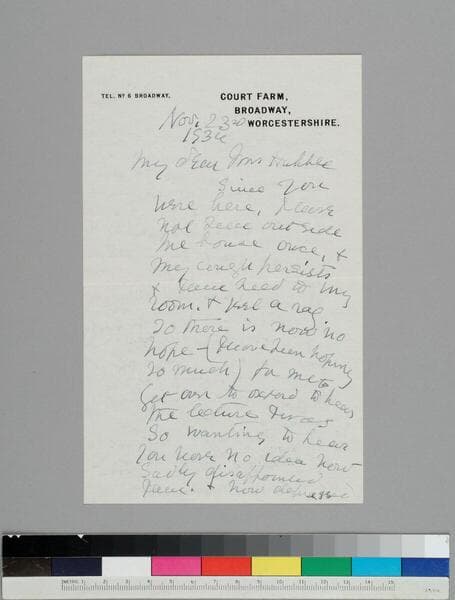 TEL. Nº 6 BROADWAY.
COURT FARM,
BROADWAY,
WORCESTERSHIRE.
Nov. 23rd
1934
My dear Mrs Hubble
Since you
were here, I have
not been outside
the house once, &
my cough persists
& I am tied to my
room. & feel a rag
So there is now no
hope – (I have been hoping
so much) for me to
get over to oxford to hear
the lecture I was
so wanting to hear
You have no idea how
sadly disappointed
I am. & how depressed